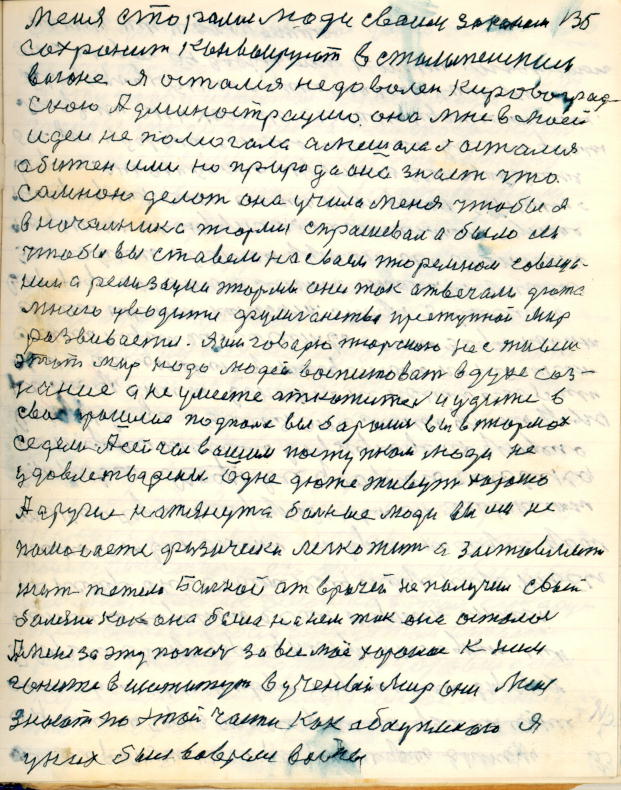 Меня старалися люди своим законом 135
сохранит Канвоируют в сталыпенским
вагоне Я остался недоволен Кировоград-
скою Администрацию она мне в моей
идеи не помогала а мешала Я остался
абижен ими но природа она знает что
самною делат она учила меня чтобы я
в начальника тюрмы спрашевал а было ли
чтобы вы ставели на своем тюремном совеща-
нии а тюрмы они так атвечали дюжа
много уводите фулиганства преступной мир
развивается. Я им говорю тюрмою не
этот мир надо людей воспитоват в духе соз-
нание а не умеете откажитес и уйдите в
свае прошлае подполе вы баролис вы в тюрмах
седели А сейчас вашим поступком люди не
удовлетварены Одне дюже живут хорошо
А другие натянута больные люди вы им не
помогаете физически легко жит а заставляете
жит тежело Балной ат врачей не получил свой
балезни как она была на нем так она осталас
А меня за эту помоч за все мое хорошае к ним
гоните в институт в ученый мир они меня
знают по этой части как абаумного Я
у них был вовремя войны